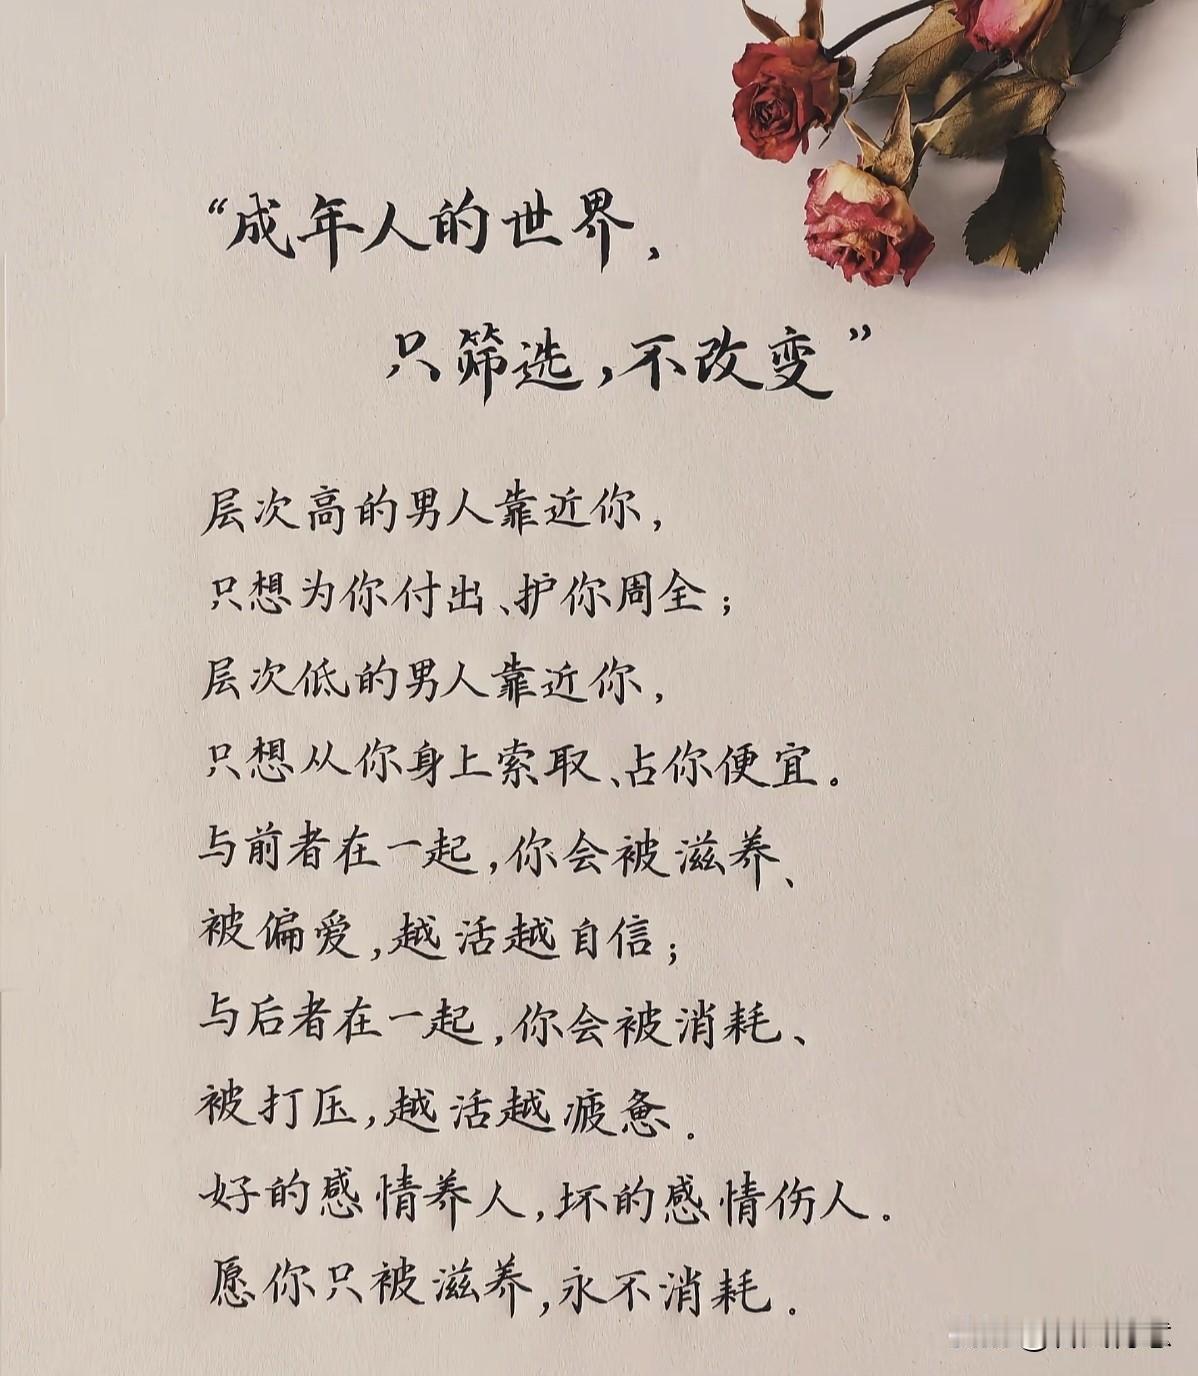 “成年人的世界，
只筛选，不改变”
层次高的男人靠近你，
只想为你付出、护你周全；
层次低的男人靠近你，
只想从你身上索取、占你便宜。
与前者在一起，你会被滋养、
被偏爱，越活越自信；
与后者在一起，你会被消耗、
被打压，越活越疲惫。
好的感情养人，坏的感情伤人。
愿你只被滋养，永不消耗。